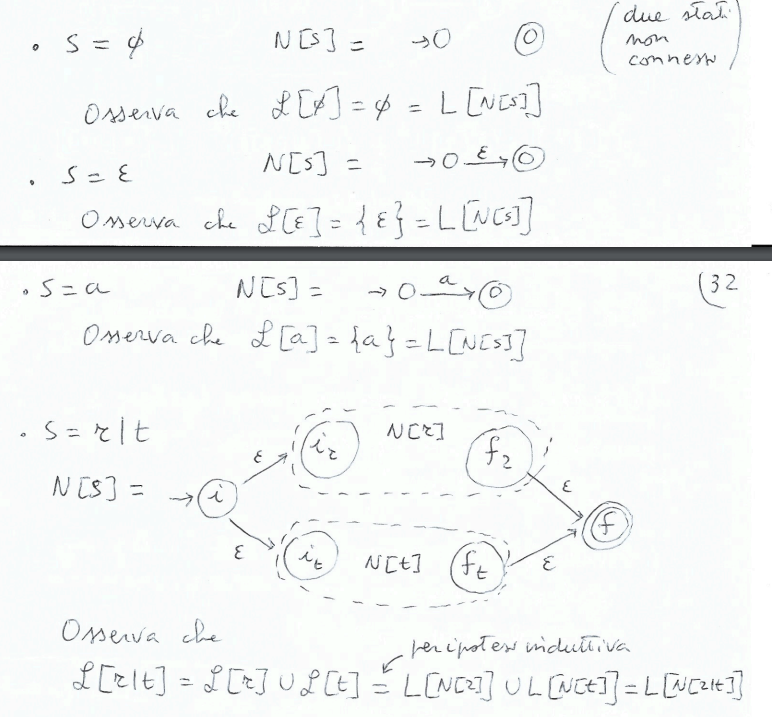 • S = ϕ N[S] = →O O (due stati
non
connessi)
Osserva che ℒ[ϕ] = ϕ = L[N[S]]
• S = ε N[S] = →O ε→ O
Osserva che ℒ[ε] = {ε} = L[N[S]]
• S = a N[S] = →O a→ O (32
Osserva che ℒ[a] = {a} = L[N[S]]
• S = r|t
N[r]
i_r f_r
ε ε
N[S] = → i f
ε ε
i_t N[t] f_t
Osserva che
per ipotesi induttiva
ℒ[r|t] = ℒ[r] ∪ ℒ[t] = L[N[r]] ∪ L[N[t]] = L[N[r|t]]